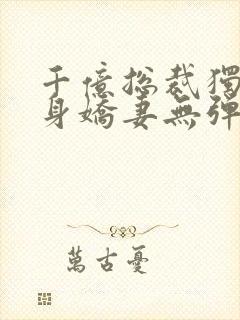 千億總裁獨
身嬌妻無彈
萬古憂